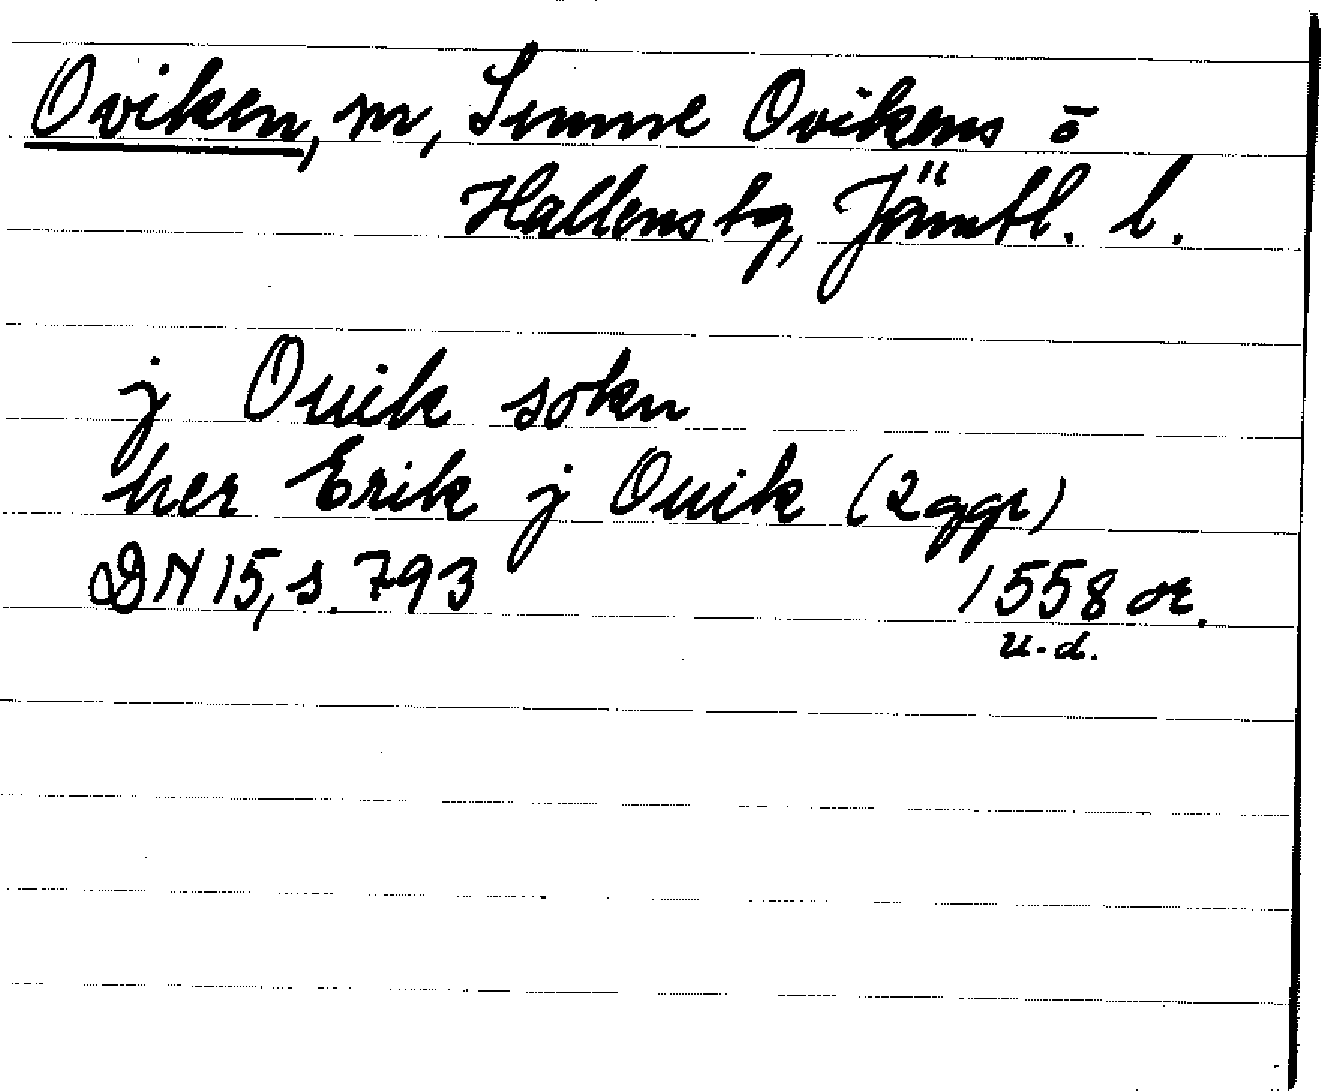 Oviken, sn, Sunne Ovikens o
Hallens tg, Jämtl. l.
j Ouik sokn
her Erik j Ouik (2ggr)
DN 15, s. 793 1558 or.
u.d.